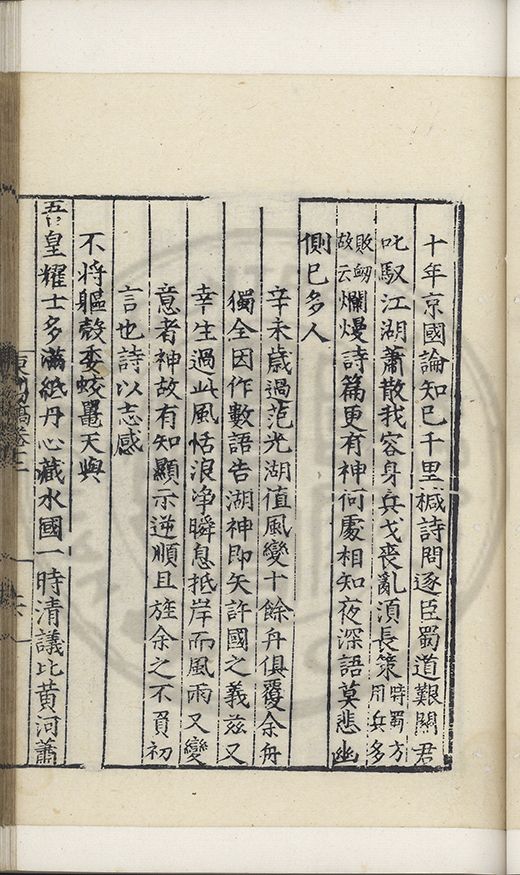 十年京國論知己千里椷詩問逐臣蜀道艱關君
叱馭江湖蕭散我容身兵戈喪亂湏長策時蜀方用兵多
敗衂故云爛熳詩篇更有神何處相知夜深語莫悲幽
側已多人
辛未歲過范光湖值風變十餘舟俱覆余舟
獨全因作數語告湖神即矢許國之義兹又
幸生過此風恬浪净瞬息抵岸而風雨又變
意者神故有知顯示逆順且旌余之不負初
言也詩以志感
不將軀殼委蛟鼉天與
吾皇耀士多滿紙丹心藏水國一時清議比黄河蕭